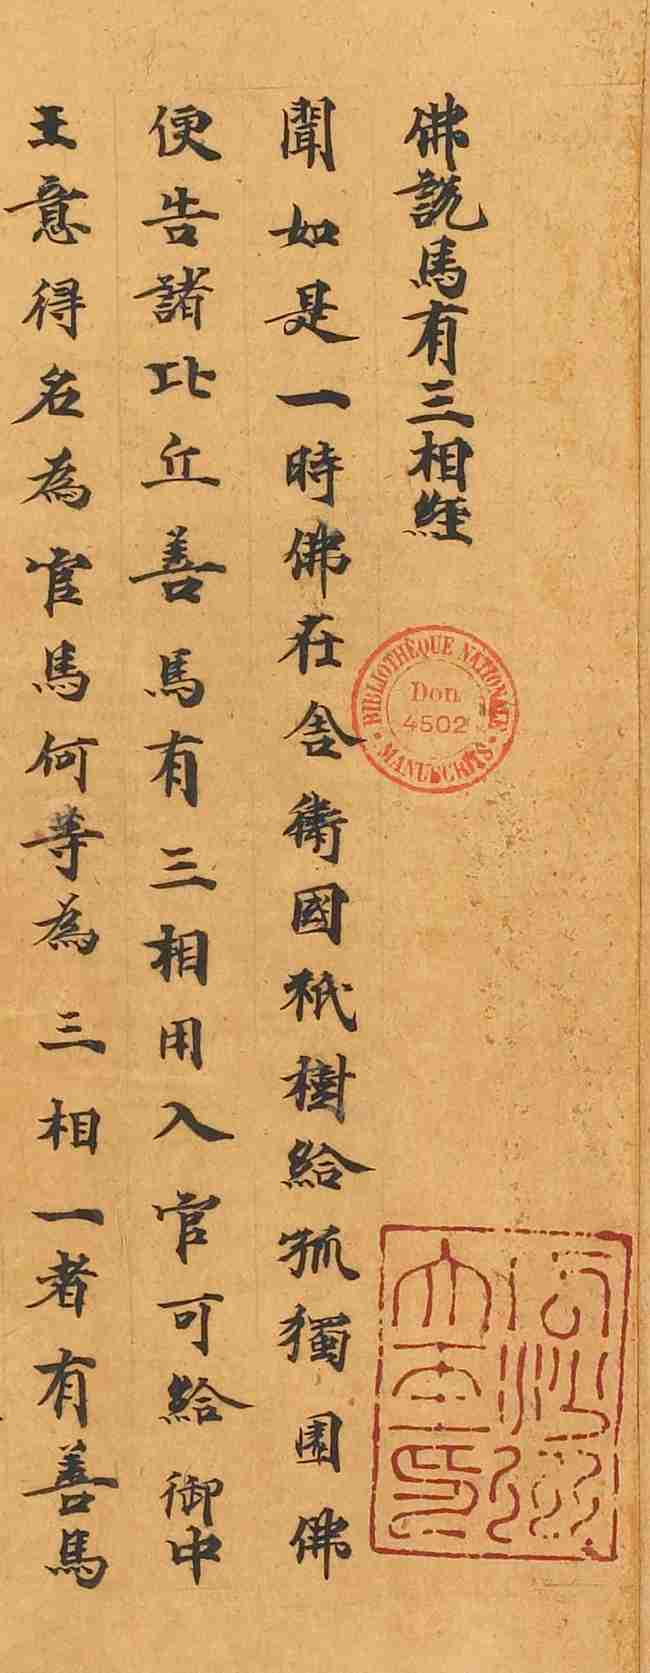 佛說馬有三相經
聞如是一時佛在舍衛國祇樹給孤獨園佛
便告諸比丘善馬有三相用入官可給御中
王意得名為官馬何等為三相一者有善馬
BIBLIOTHÈQUE NATIONALE
Don
4502
MANUSCRITS